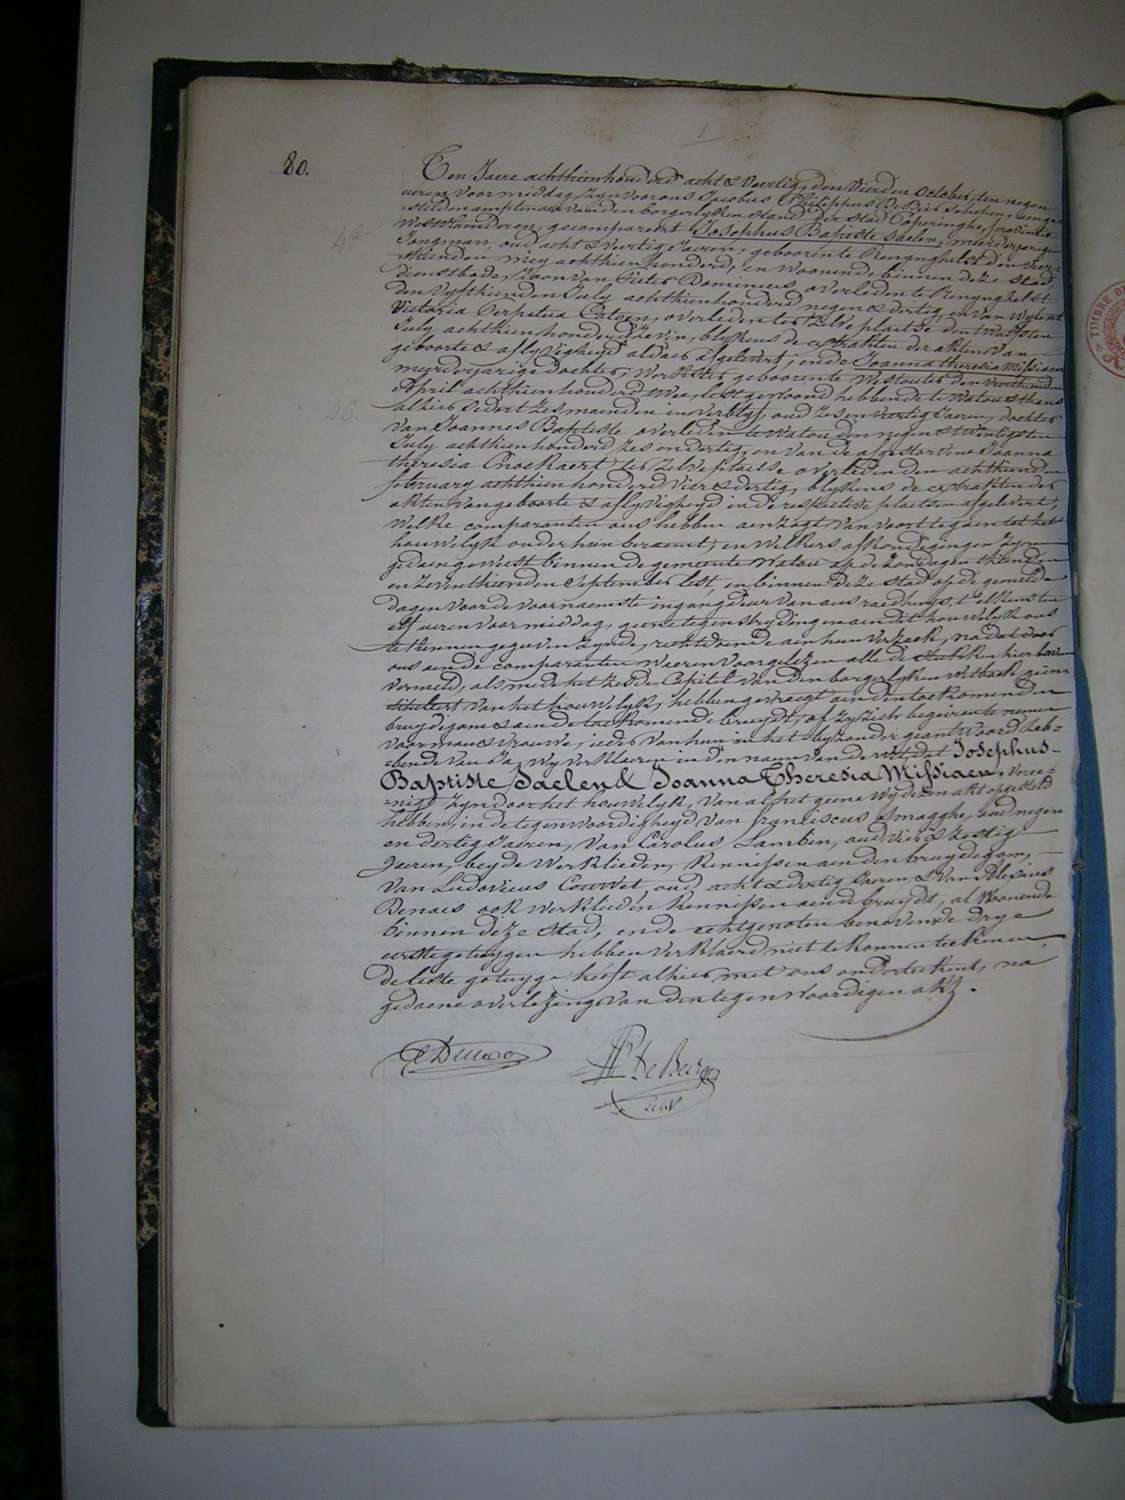 80.
Ten Jaere achthienhonderd acht & veertig, den vierden October, ten negen
ueren voormiddag, zyn voor ons Jacobus Philippus De Bier schepen, aenge-
stelden amptenaer van den borgerlyken stand der stad Poperinghe, provincie
Westvlaenderen, gecompareert Josephus Baptiste Saelen, meerderjarigen
Jongman, oud acht & veertig Jaeren, geboren te Renynghelst den vier-
thienden mey achthienhonderd, en woonende binnen deze stad,
dienstbode, Zoon van Pieter Domineus overleden te Renynghelst
den vyfthienden July achthienhonderd negen & dertig, en van wylent
Victoria Perpetua Catoen, overleden ter zelve plaetse den twalfsten
July achthienhonderd zeven, blykens de extrakten der akten van
geboorte & aflyvigheyd aldaer afgelevert; ende Joanna theresia Missiaen
meerderjarige dochter, werkster, geboren te Westouter den veerthienden
April achthienhonderd twee, lest gewoond hebbende te Watou & thans
alhier sedert zes maenden in verblyf, oud zes en veertig Jaeren, dochter
van Joannes Baptiste overleden te Watou den negen & twintigsten
July achthienhonderd zes en dertig, en van de afgestorvene Joanna
theresia Cnockaert ter zelve plaetse overleden den achthienden
february achthienhonderd vier & dertig, blykens de extrakten der
akten van geboorte & aflyvigheyd in de respective plaetsen afgelevert;
Welke comparanten ons hebben aenzogt van voort te gaen tot het
houwelyk onder hun beraemt, en welkers afkondigingen zyn
gedaen geweest binnen de gemeente Watou op de zondagen thienden
en zeventhienden September lest, en binnen deze stad op de gemelde
dagen voor de voornaemste ingangdeur van ons raedhuys, t'elkens ten
elf ueren voormiddag, geene tegenstrydingen aen dit houwelyk ons
te kennen gegeven zynde, rechtdoende aen hun verzoek, na dat door
ons aen de comparanten waeren voorgelezen alle de stukken hier boven
vermeld, alsmede het zesde Capitel van den borgerlyken wetboek geïn-
tituleert van het houwelyk, hebben gevraegt aen den toekomenden
bruydegom & aen de toekomende bruydt, of zy zich begeeren te nemen
voor man & vrouwe; ieder van hun in het byzonder geantwoord heb-
bende van Ja, wy verklaeren in den naem van de wet dat Josephus-
Baptiste Saelen & Joanna Theresia Missiaen veree-
nigt zyn door het houwelyk, van al het geene wy dezen akt opgesteld
hebben, in de tegenwoordigheyd van franciscus Smagghe, oud negen
en dertig Jaeren, van Carolus Lambin, oud vier & zestig
Jaeren, beyde werklieden, kennissen aen den bruydegom,
van Ludovicus Couwet, oud acht & dertig Jaeren & van Alexius
Denaes ook werklieden kennissen aen de bruydt, al woonende
binnen deze stad, ende echtgenoten benevens de drye
eerste getuygen hebben verklaerd niet te konnen teekenen,
de leste getuyge heeft alhier met ons onderteekent, na
gedaene overlezing van den tegenwoordigen akt.
TIMBRE DE